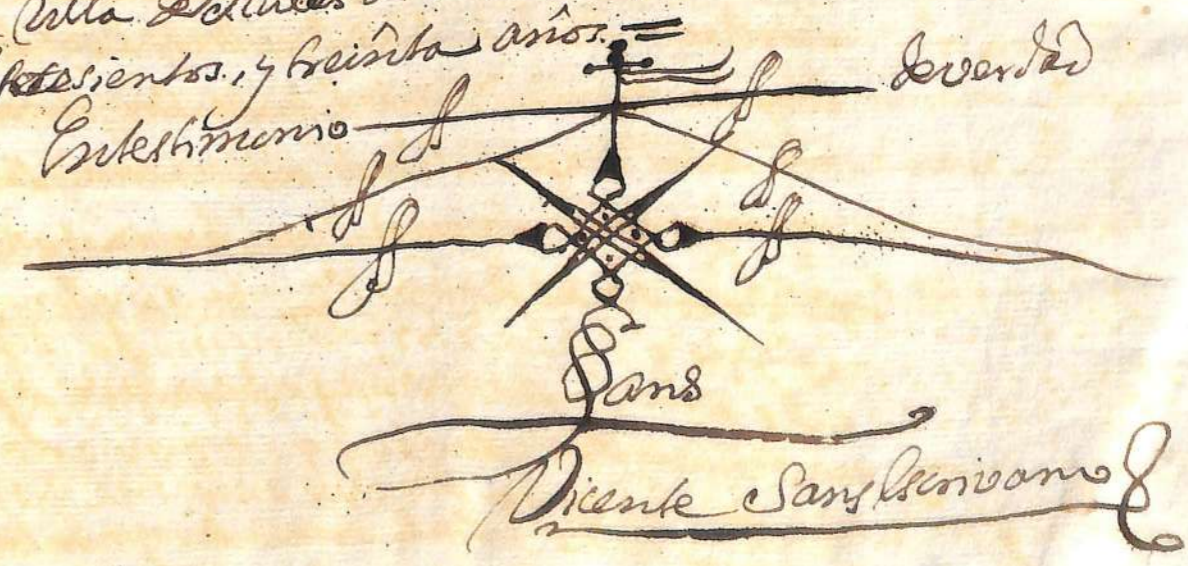 Villa de
setesientos, y treinta años. =
En testimonio de verdad
Sans
Vicente Sans Escrivano